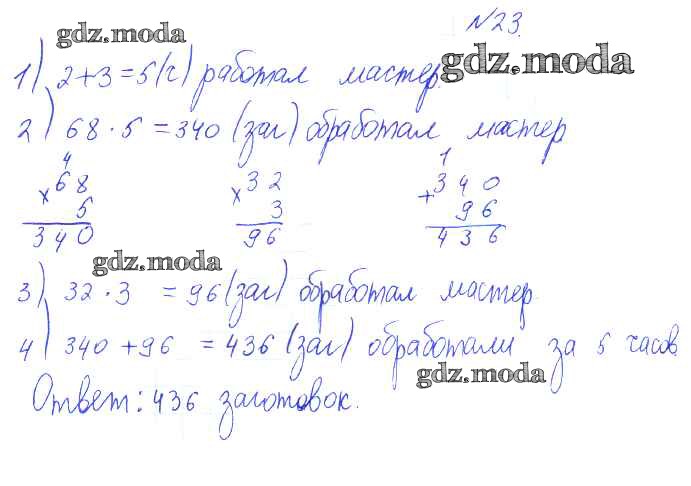 №23.
gdz.moda
gdz.moda
1) 2+3=5(ч) работал мастер.
2) 68·5=340 (заг) обработал мастер
4 1
×68 ×32 +340
5 3 96
340 96 436
gdz.moda
3) 32·3 =96(заг) обработал мастер.
4) 340+96 =436(заг) обработали за 5 часов
gdz.moda
Ответ: 436 заготовок.